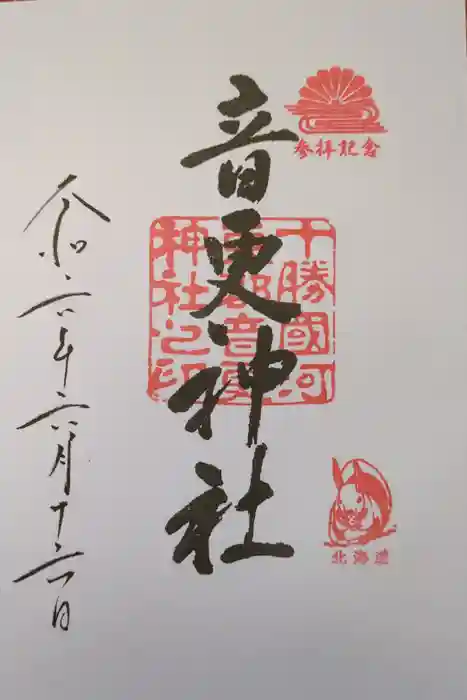 参拝記念
十勝國河
東郡音更
神社之印
音更神社
北海道
令和六年六月十六日